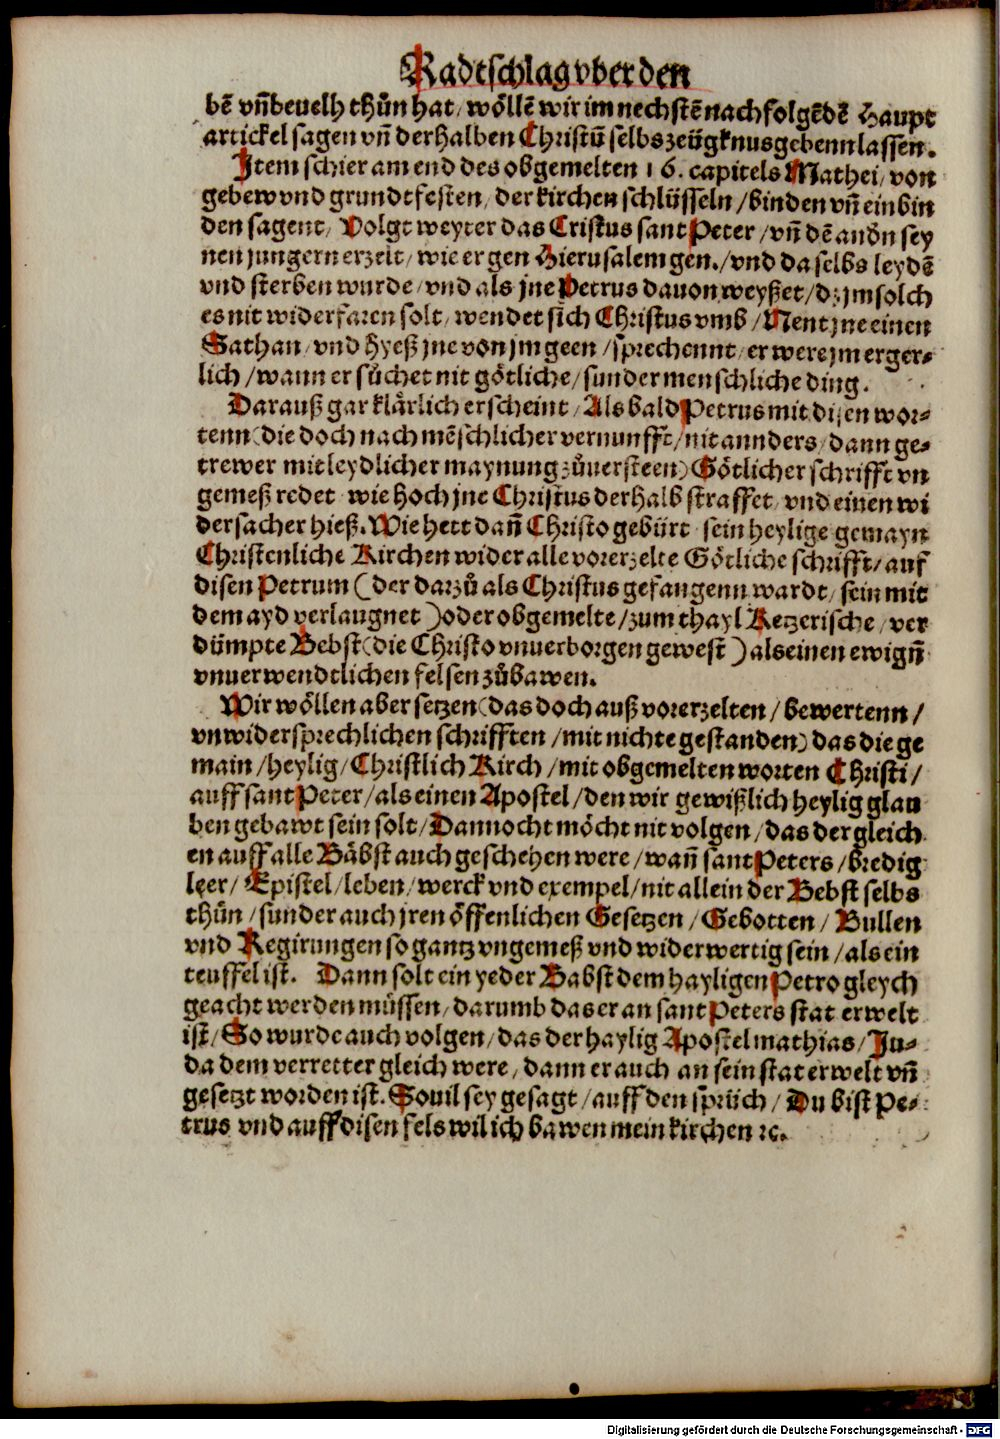 Radtschlag vber den
bē vñ beuelh thůn hat/ wöllē wir im nechstē nachfolgēdē Haupt
artickel sagen vñ derhalben Christū selbs zeügknus geben lassen.
Item schier am end des obgemelten 16. capitels Mathei/ von
gebew vnd grundtfesten/ der kirchen schlüsseln/ binden vñ einbin
den sagent/ Volgt weyter das Cristus sant Peter/ vñ dē andn̄ sey
nen jungern erzelt/ wie er gen Hierusalem gen./ vnd da selbs leydē
vnd sterben wurde/ vnd als jne Petrus dauon weyßet/ dz jm solch
es nit widerfaren solt/ wendet sich Christus vmb/ Nent jne einen
Sathan/ vnd hyeß jne von jm geen/ sprechennt/ er were jm erger⸗
lich/ wann er sůchet nit götliche/ sunder menschliche ding.
Darauß gar klärlich erscheint/ Als bald Petrus mit disen wor⸗
tenn (die doch nach mēschlicher vernunfft/ nit annders/ dann ge⸗
trewer mitleydlicher maynung zůuersteen) Götlicher schrifft vn
gemeß redet/ wie hoch jne Christus derhalb straffet/ vnd einen wi
dersacher hieß. Wie hett dañ Christo gebürt/ sein heylige gemayn
Christenliche Kirchen wider alle vorerzelte Götliche schrifft/ auf
disen Petrum (der darzů als Christus gefangenn wardt/ sein mit
dem ayd verlaugnet) oder obgemelte/ zum thayl Ketzerische/ ver
dümpte Bebst (die Christo vnuerborgen gewest) als einen ewigñ
vnuerwendtlichen felsen zůbawen.
Wir wöllen aber setzen (das doch auß vorerzelten/ bewertenn/
vnwidersprechlichen schrifften/ mit nichte gestanden) das die ge
main/ heylig/ Christlich Kirch/ mit obgemelten worten Christi/
auff sant Peter/ als einen Apostel/ den wir gewißlich heylig glau
ben gebawt sein solt/ Dannocht möcht nit volgen/ das der gleich
en auff alle Bäbst auch geschehen were/ wañ sant Peters/ bredig
leer/ Epistel/ leben/ werck vnd exempel/ nit allein der Bebst selbs
thůn/ sunder auch jren öffenlichen Gesetzen/ Gebotten/ Bullen
vnd Regirungen so gantz vngemeß vnd widerwertig sein/ als ein
teuffel ist. Dann solt ein yeder Babst dem hayligen Petro gleych
geacht werden müssen/ darumb das er an sant Peters stat erwelt
ist/ So wurde auch volgen/ das der haylig Apostel mathias/ Ju⸗
da dem verretter gleich were/ dann er auch an sein stat erwelt vñ
gesetzt worden ist. Souil sey gesagt/ auff den sprüch/ Du bist Pe⸗
trus vnd auff disen fels wil ich bawen mein kirchen ꝛc.
Digitalisierung gefördert durch die Deutsche Forschungsgemeinschaft - DFG